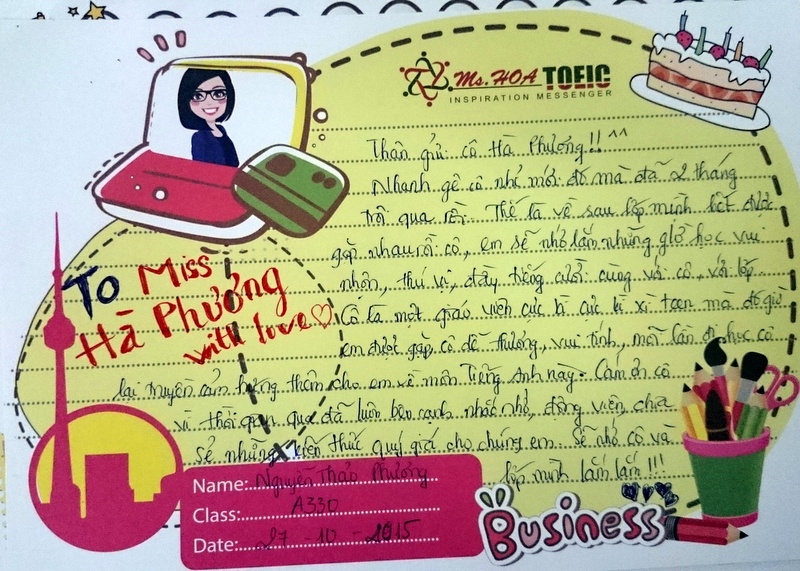 Ms. HOA TOEIC
INSPIRATION MESSENGER
Thân gửi cô Hà Phương!! ^^
Nhanh ghê cô nhỉ mới đó mà đã 2 tháng
trôi qua rồi. Thế là về sau lớp mình hết được
gặp nhau rồi cô, em sẽ nhớ lắm những giờ học vui
nhộn, thú vị, đầy tiếng cười cùng với cô, với lớp.
Cô là một giáo viên cực kì cực kì xì teen mà đó giờ
em được gặp, cô dễ thương, vui tính, mỗi lần đi học cô
lại truyền cảm hứng thêm cho em về môn Tiếng Anh này. Cảm ơn cô
vì thời gian qua đã luôn bên cạnh nhắc nhở, động viên, chia
sẻ những kiến thức quý giá cho chúng em. Sẽ nhớ cô và
lớp mình lắm lắm!!!
To Miss
Hà Phương
with love
Name: Nguyễn Thảo Phương
Class: A330
Date: 27 - 10 - 2015
Business